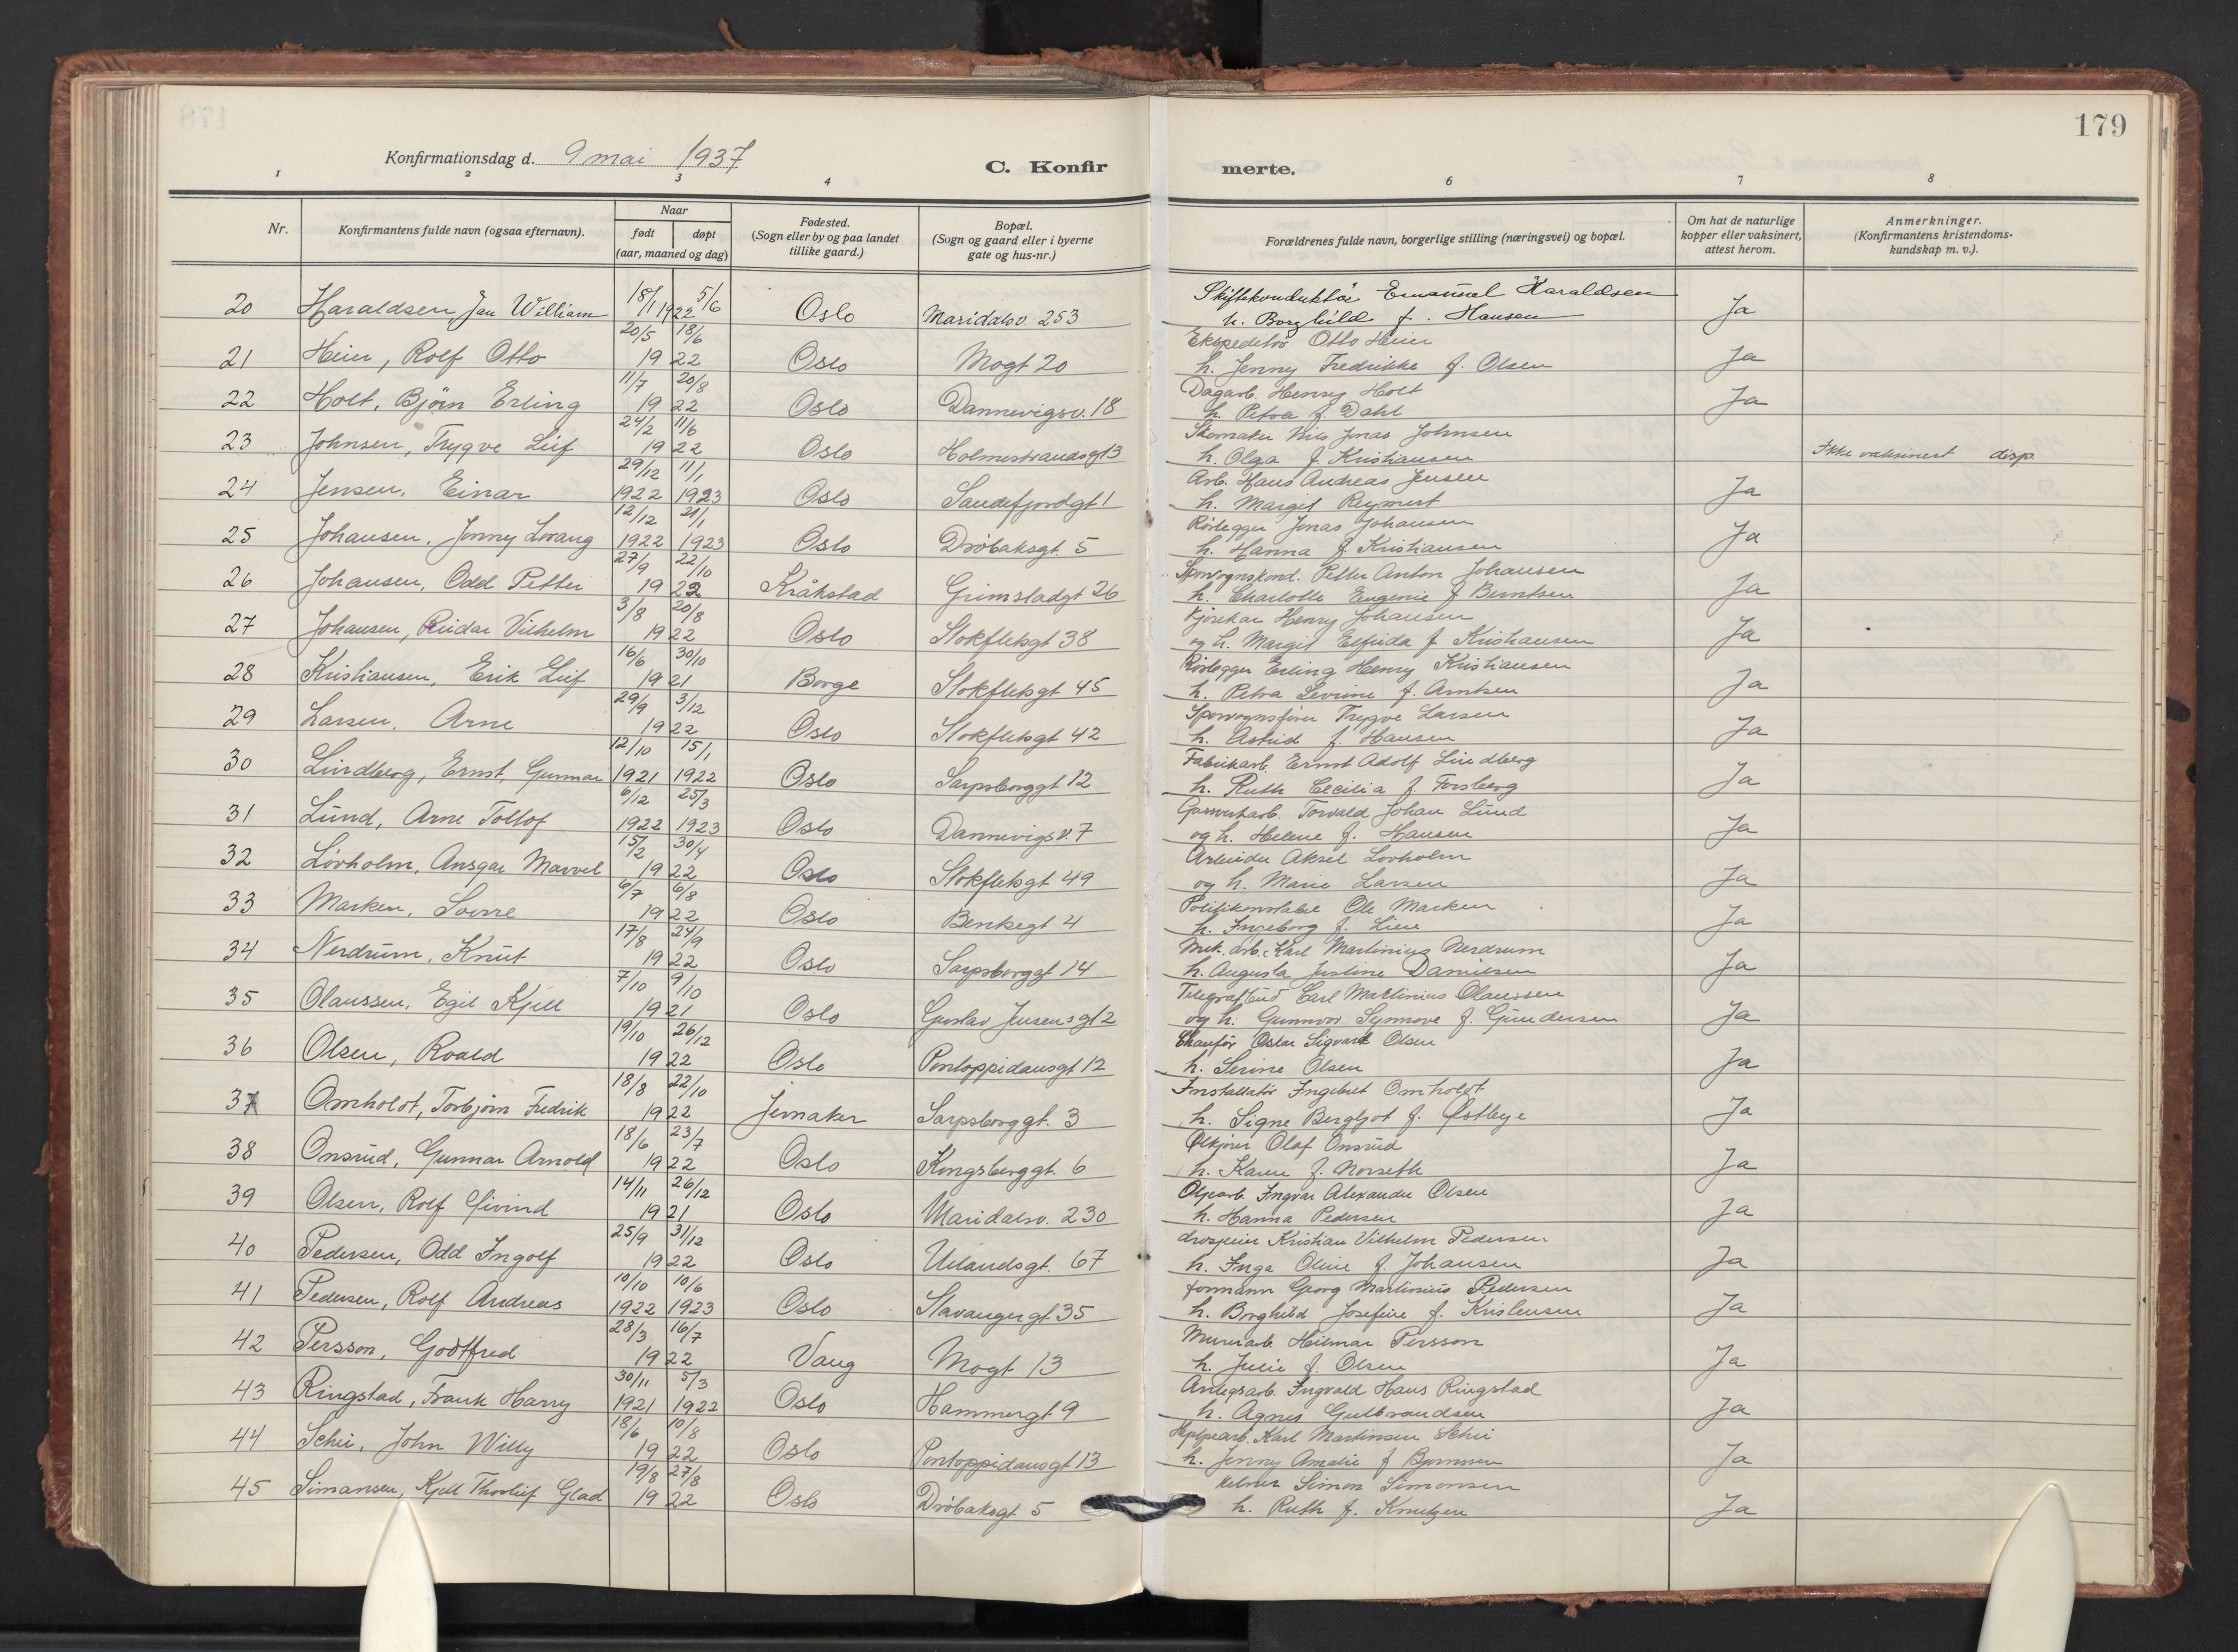 179
Konfirmationsdag d. 9 mai 1937
C. Konfir merte.
1 2 3 4 6 7 8
Nr.
Konfirmantens fulde navn (ogsaa efternavn).
Naar
født døpt
(aar, maaned og dag)
Fødested.
(Sogn eller by og paa landet
tillike gaard.)
Bopæl.
(Sogn og gaard eller i byerne
gate og hus-nr.)
Forældrenes fulde navn, borgerlige stilling (næringsvei) og bopæl.
Om hat de naturlige
kopper eller vaksinert,
attest herom.
Anmerkninger.
(Konfirmantens kristendoms-
kundskap m. v.).
18/1 5/6 Skiftekonduktør Emanuel Haraldsen
20 Haraldsen, Jan William 1922 Oslo Maridalsv. 253 h. Borghild f. Hansen Ja
20/5 18/6 Ekspeditør Otto Heier
21 Heier, Rolf Otto 1922 Oslo Mogt 20 h. Jenny Fredrikke f. Olsen Ja
11/7 20/8 Dagarb. Henry Holt
22 Holt, Björn Erling 1922 Oslo Dannevigsv. 18 h. Petra f. Dahl Ja
24/2 11/6 Skomaker Nils Jonas Johnsen
23 Johnsen, Trygve Leif 1922 Oslo Holmestrandsgt 3 h. Olga f. Kristiansen Ikke vaksinert disp.
29/12 11/1 Arb. Hans Andreas Jensen
24 Jensen, Einar 1922 1923 Oslo Sandefjordgt 1 h. Margit Reymert Ja
12/12 21/1 Rørlegger Jonas Johansen
25 Johansen, Jonny Lorang 1922 1923 Oslo Drøbaksgt. 5 h. Hanna f. Kristiansen Ja
27/9 22/10 Sporvognskond. Petter Anton Johansen
26 Johansen, Odd Petter 1922 Kråkstad Grimstadgt 26 h. Charlotte Eugenie f Berntsen Ja
3/8 20/8 Kjørekar Henry Johansen
27 Johansen, Reidar Vilhelm 1922 Oslo Stokfletsgt 38 og h. Margit Elfrida f Kristiansen Ja
16/6 30/10 Rørlegger Erling Henry Kristiansen
28 Kristiansen, Erik Leif 1921 Borge Stokfletsgt 45 h. Petra Sevrine f. Arntsen Ja
29/9 3/12 Sporvognsfører Trygve Larsen
29 Larsen, Arne 1922 Oslo Stokfletsgt 42 h. Astrid f. Hansen Ja
12/10 15/1 Fabrikarb. Ernst Adolf Lindberg
30 Lindberg, Ernst, Gunnar 1921 1922 Oslo Sarpsborggt 12 h. Ruth Cecilia f. Forsberg Ja
6/12 25/3 Gasverkarb. Torvald Johan Lund
31 Lund, Arne Tollof 1922 1923 Oslo Dannevigsv. 7 og h. Helene f. Hansen Ja
15/2 30/4 Arbeider Aksel Lovholm
32 Lövholm, Ansgar Marvel 1922 Oslo Stokfletsgt 49 og h. Marie Larsen Ja
6/7 6/8 Politikonstabel Ole Marken
33 Marken, Sverre 1922 Oslo Bentsegt 4 h. Ingeborg f. Lien Ja
17/8 24/9 Mek. arb. Karl Martinius Nerdrum
34 Nerdrum, Knut 1922 Oslo Sarpsborggt 14 h. Augusta Justine Danielsen Ja
7/10 9/10 Telegrafbud Carl Martinius Olaussen
35 Olaussen, Egil Kjell 1921 Oslo Gustav Jensens gt 2 og h. Gunnvor Synnove f. Gundersen Ja
19/10 26/12 Chaufør Oskar Sigvart Olsen
36 Olsen, Roald 1922 Oslo Pontoppidansgt 12 h. Serine Olsen Ja
18/8 22/10 Installatör Ingebret Omholdt
37 Omholdt, Torbjörn Fredrik 1922 Jevnaker Sarpsborggt. 3 h. Signe Bergljot f. Østbye Ja
18/6 23/7 Ølkjører Olaf Onsrud
38 Onsrud, Gunnar Arnold 1922 Oslo Kongsberggt. 6 h. Karen f. Norseth Ja
14/11 26/12 Oljearb. Ingvar Alexander Olsen
39 Olsen, Rolf Eivind 1921 Oslo Maridalsv. 230 h. Hanna Pedersen Ja
25/9 31/12 drosjeeier Kristian Vilhelm Pedersen
40 Pedersen, Odd Ingolf 1922 Oslo Uelandsgt. 67 h. Inga Oline f. Johansen Ja
10/10 10/6 formann Georg Martinius Pedersen
41 Pedersen, Rolf Andreas 1922 1923 Oslo Stavangergt. 35 h. Borghild Josefine f. Kristensen Ja
28/3 16/7 Murerarb. Hilmar Persson
42 Persson, Godtfred 1922 Vang Mogt 13 h. Julie f. Olsen Ja
30/11 5/3 Anlegsarb. Ingvald Hans Ringstad
43 Ringstad, Frank Harry 1921 1922 Oslo Hammergt 9 h. Agnes Gulbrandsen Ja
18/6 10/8 Hjelpearb. Karl Martinsen Schei
44 Schei, John Willy 1922 Oslo Pontoppidansgt 13 h. Jenny Amalie f Ja
19/8 27/8 Kelner Simon Simonsen
45 Simansen, Kjell Thorleif Glad 1922 Oslo Drøbaksgt 5 h. Ruth f. Knutzen Ja